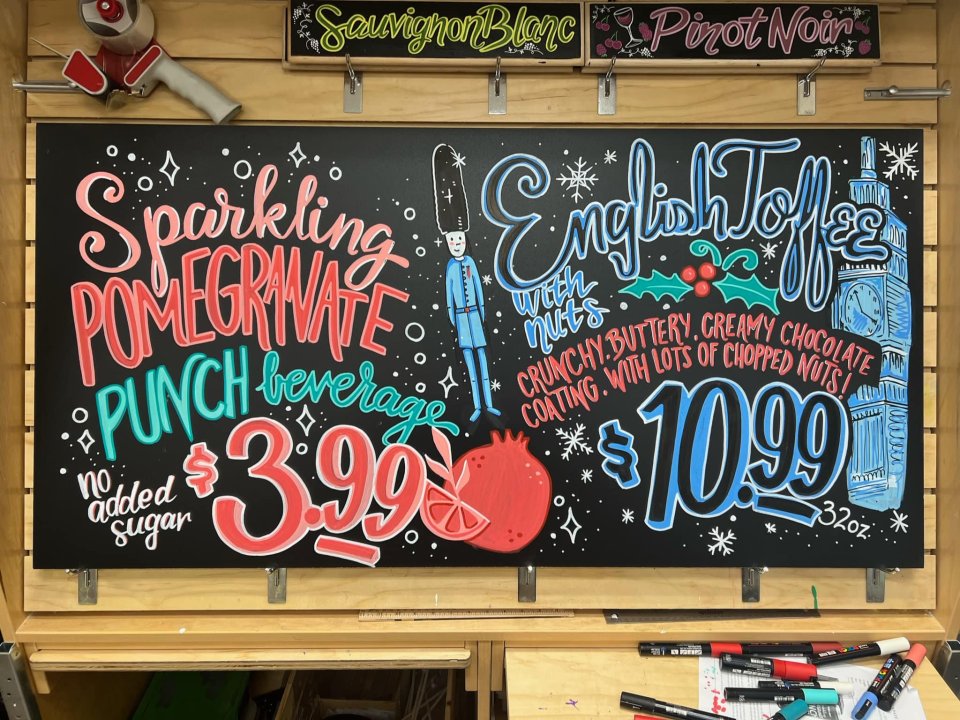 Sauvignon Blanc
Pinot Noir
Sparkling
POMEGRANATE
PUNCH beverage
no
added
sugar
$3.99
English Toffee
with
nuts
CRUNCHY. BUTTERY. CREAMY CHOCOLATE
COATING. WITH LOTS OF CHOPPED NUTS!
$10.99
32oz